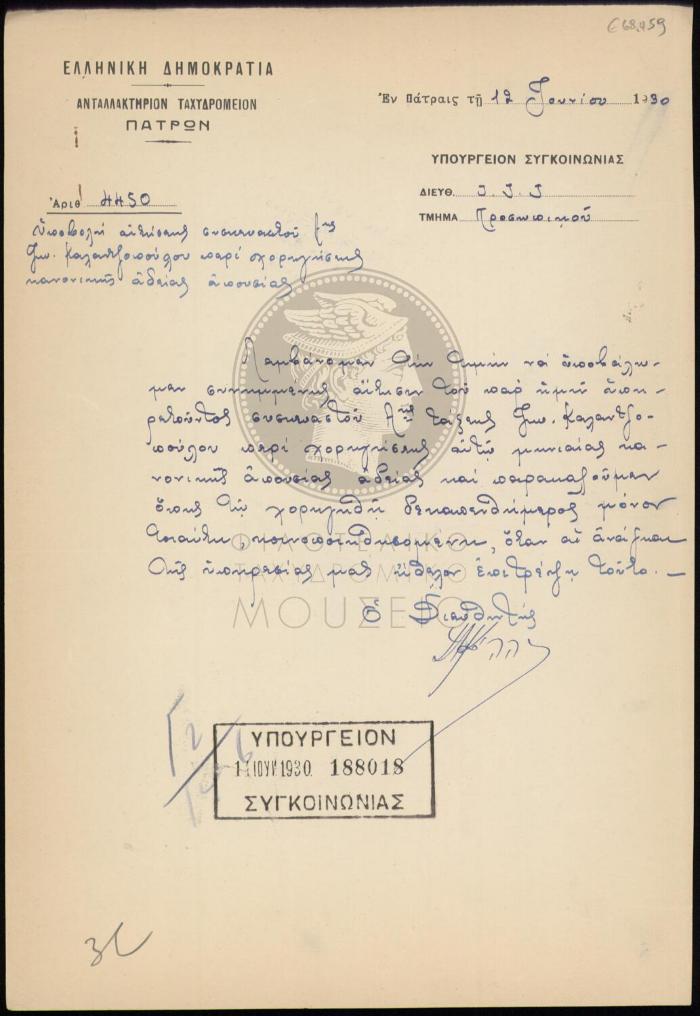 ΕΛΛΗΝΙΚΗ ΔΗΜΟΚΡΑΤΙΑ
ΑΝΤΑΛΛΑΚΤΗΡΙΟΝ ΤΑΧΥΔΡΟΜΕΙΟΝ
ΠΑΤΡΩΝ
Ἐν Πάτραις τῇ 12 Ἰουνίου 1930
ΥΠΟΥΡΓΕΙΟΝ ΣΥΓΚΟΙΝΩΝΙΑΣ
ΔΙΕΥΘ. Τ.Τ.Τ
ΤΜΗΜΑ Προσωπικοῦ
Ἀριθ. 4450
Ὑποβολή αἰτήσεως συσκευαστοῦ Αης
Γεω. Καλαντζοπούλου περί χορηγήσεως
κανονικῆς ἀδείας ἀπουσίας
Λαμβάνομεν τήν τιμήν νά ὑποβάλω-
μεν συνημμένως αἴτησιν τοῦ παρ' ἡμῖν ὑπη-
ρετοῦντος συσκευαστοῦ Αης τάξεως Γεω. Καλαντζο-
πούλου περί χορηγήσεως αὐτῷ μηνιαίας κα-
νονικῆς ἀπουσίας ἀδείας καί παρακαλοῦμεν
ὅπως τῷ χορηγηθῇ δεκαπενθήμερος μόνον
τοιαύτη, ὅταν αἱ ἀνάγκαι
τῆς ὑπηρεσίας μας ἤθελον ἐπιτρέψῃ τοῦτο. —
Ὁ Διευθυντής
ΦΙΛΟΤΕΛΙΚΟ
ΤΑΧΥΔΡΟΜΙΚΟ
ΜΟΥΣΕΙΟ
ΥΠΟΥΡΓΕΙΟΝ
ΙΟΥΝ 1930 188018
ΣΥΓΚΟΙΝΩΝΙΑΣ